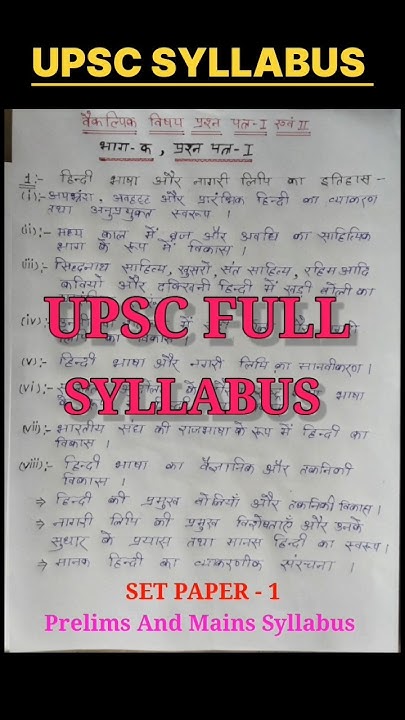 UPSC SYLLABUS
वैकल्पिक विषय प्रश्न पत्र-I एवं II
भाग-क, प्रश्न पत्र-I
1:- हिन्दी भाषा और नागरी लिपि का इतिहास-
(i):- अपभ्रंश, अवहट्ट और प्रारंभिक हिन्दी का व्याकरण
तथा अनुप्रयुक्त स्वरूप।
(ii):- मध्य काल में ब्रज और अवधि का साहित्यिक
भाषा के रूप में विकास।
(iii):- सिद्धनाथ साहित्य, खुसरो, संत साहित्य, रहिम आदि
कवियों और दक्खिनी हिन्दी में खड़ी बोली का
UPSC FULL
(iv):-
का विकास।
(v):- हिन्दी भाषा और नगरी लिपि का मानकीकरण।
SYLLABUS
(vi):- भाषा
(vii):- भारतीय संघ की राजभाषा के रूप में हिन्दी का
विकास।
(viii):- हिन्दी भाषा का वैज्ञानिक और तकनिकी
विकास।
⇒ हिन्दी की प्रमुख बोलियाँ और तकनिकी विकास।
⇒ नागरी लिपि की प्रमुख विशेषताएँ और उनके
सुधार के प्रयास तथा मानस हिन्दी का स्वरूप।
⇒ मानक हिन्दी का व्याकरणीक संरचना।
SET PAPER - 1
Prelims And Mains Syllabus